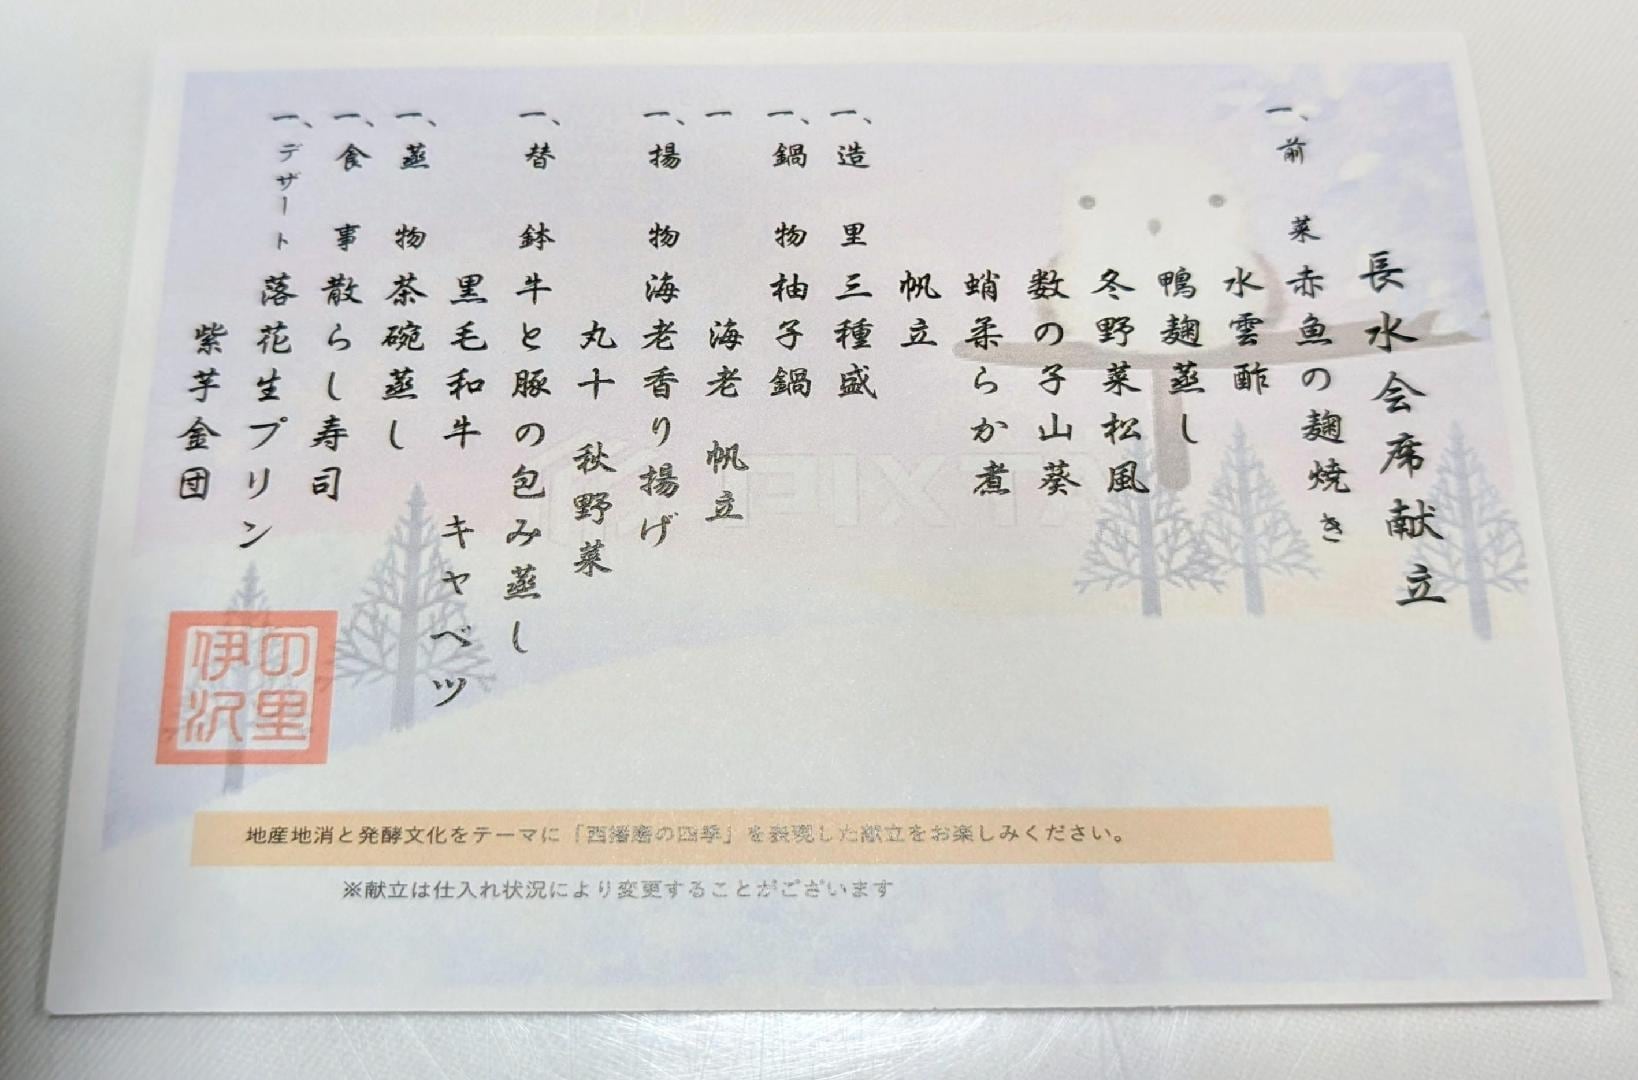 長水会席献立
一、前菜 赤魚の麹焼き
水雲酢
鴨麹蒸し
冬野菜松風
数の子山葵
蛸柔らか煮
帆立
一、造里 三種盛
一、鍋物 柚子鍋
一 海老 帆立
一、揚物 海老香り揚げ
丸十 秋野菜
一、替鉢 牛と豚の包み蒸し
黒毛和牛 キャベツ
一、蒸物 茶碗蒸し
一、食事 散らし寿司
一、デザート 落花生プリン
紫芋金団
伊沢の里
地産地消と発酵文化をテーマに「西播磨の四季」を表現した献立をお楽しみください。
※献立は仕入れ状況により変更することがございます